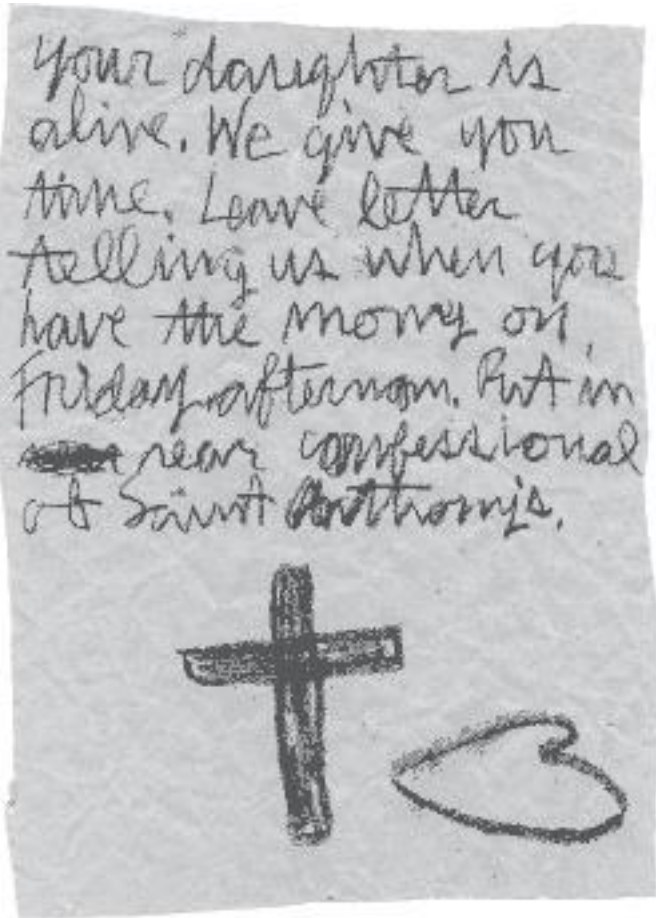 your daughter is
alive. We give you
time. Leave letter
telling us when you
have the money on
Friday afternoon. Put in
rear confessional
at Saint Anthony's.